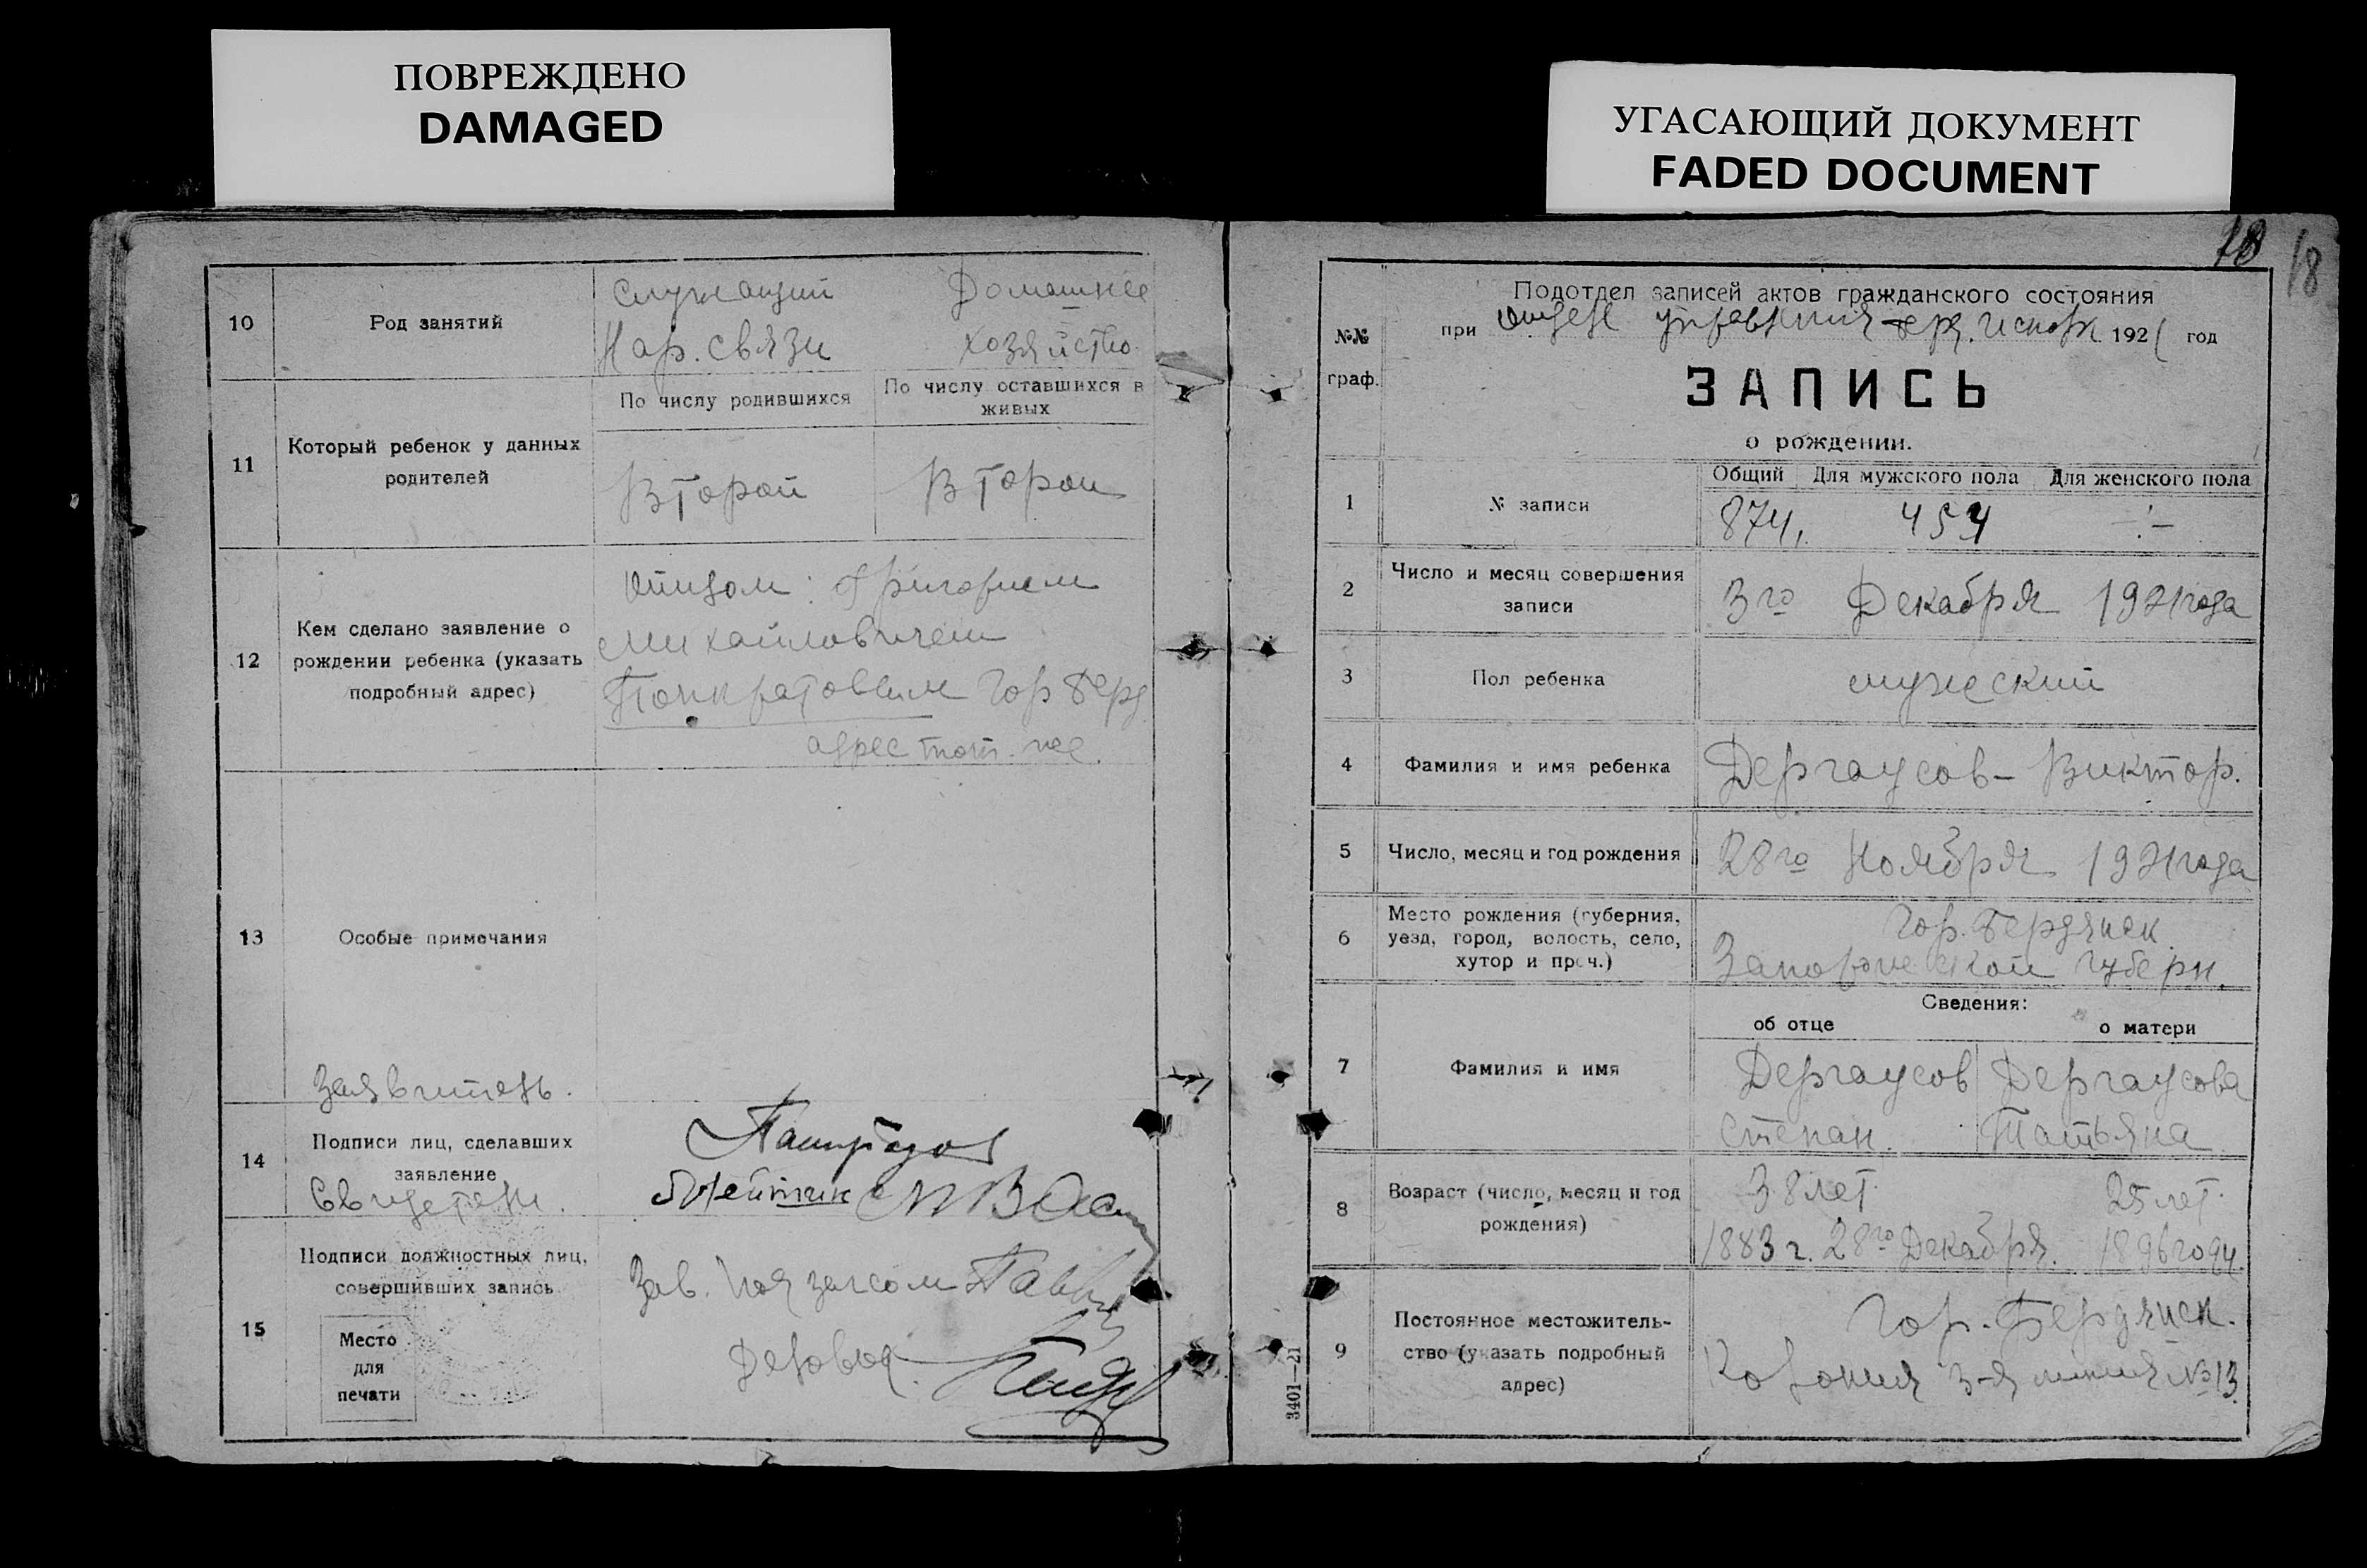 ПОВРЕЖДЕНО
DAMAGED
УГАСАЮЩИЙ ДОКУМЕНТ
FADED DOCUMENT
10
Род занятий
Служащий
Нар. связи
Домашнее
хозяйство
11
Который ребенок у данных
родителей
По числу родившихся
По числу оставшихся в
живых
Второй
Второй
12
Кем сделано заявление о
рождении ребенка (указать
подробный адрес)
Отцом: Григорием
Михайловичем
Панкратовым Гор Берд
адрес тот же.
13
Особые примечания
Заявитель.
14
Подписи лиц, сделавших
заявление
Свидетели.
15
Подписи должностных лиц,
совершивших запись
Место
для
печати
Зав.
Делов
18
18
№№
граф.
Подотдел записей актов гражданского состояния
при Отделе управления 1921 год
ЗАПИСЬ
о рождении.
1
№ записи
Общий
Для мужского пола
Для женского пола
874,
454
-:-
2
Число и месяц совершения
записи
3го Декабря 1921 года
3
Пол ребенка
мужеский
4
Фамилия и имя ребенка
Дергаусов - Виктор.
5
Число, месяц и год рождения
28го Ноября 1921 года
6
Место рождения (губерния,
уезд, город, волость, село,
хутор и проч.)
Гор. Бердянск
Запорожской губерн.
7
Фамилия и имя
Сведения:
об отце
о матери
Дергаусов
Степан.
Дергаусова
Татьяна
8
Возраст (число, месяц и год
рождения)
38 лет.
1883 г. 28го Декабря.
25 лет.
1896 году.
9
Постоянное местожитель-
ство (указать подробный
адрес)
Гор. Бердянск.
Колония 3-я линия № 13.
3401—21